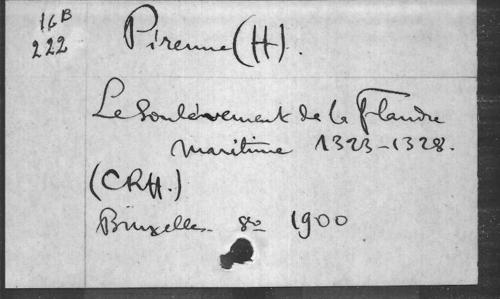 16B
222
Pirenne (H).
Le Soulèvement de la Flandre
maritime 1323-1328.
(CRH.)
Bruxelles 8o 1900